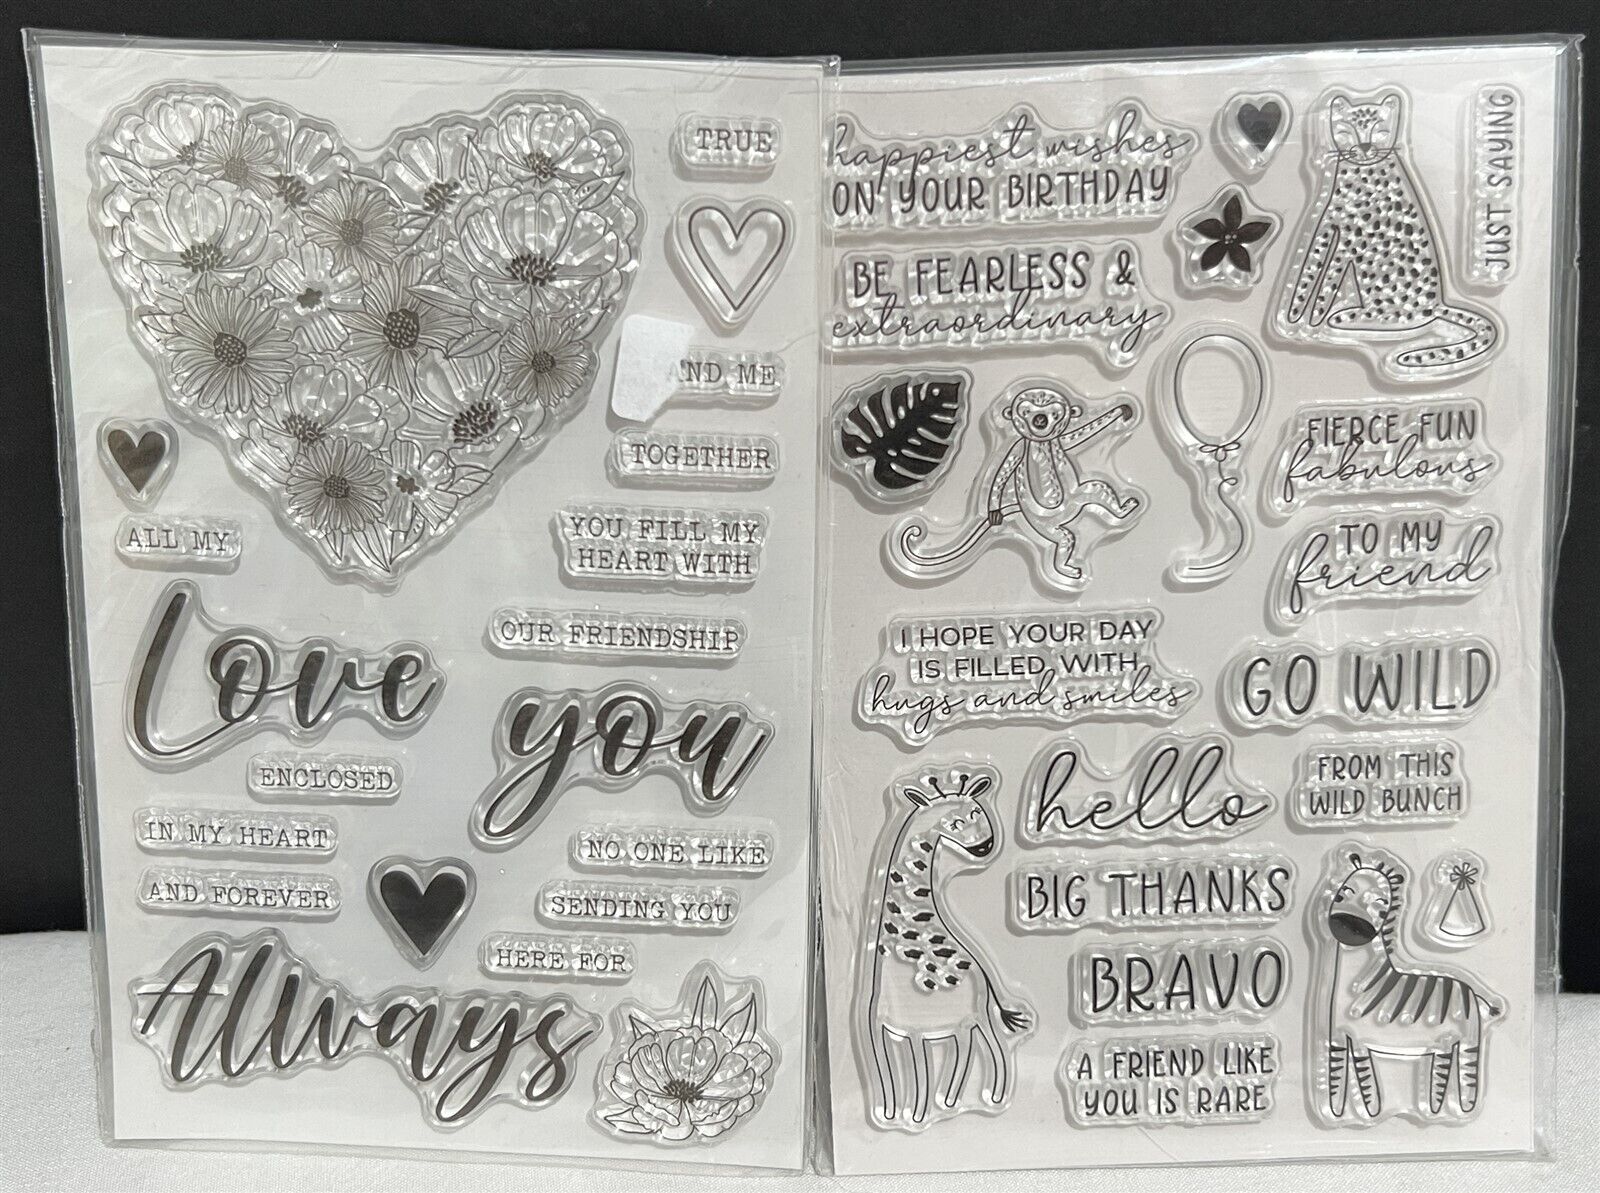 TRUE
AND ME
TOGETHER
ALL MY
YOU FILL MY
HEART WITH
OUR FRIENDSHIP
Love
you
ENCLOSED
IN MY HEART
NO ONE LIKE
AND FOREVER
SENDING YOU
HERE FOR
Always
happiest wishes
ON YOUR BIRTHDAY
JUST SAYING
BE FEARLESS &
extraordinary
FIERCE FUN
fabulous
TO MY
friend
I HOPE YOUR DAY
IS FILLED WITH
hugs and smiles
GO WILD
hello
FROM THIS
WILD BUNCH
BIG THANKS
BRAVO
A FRIEND LIKE
YOU IS RARE